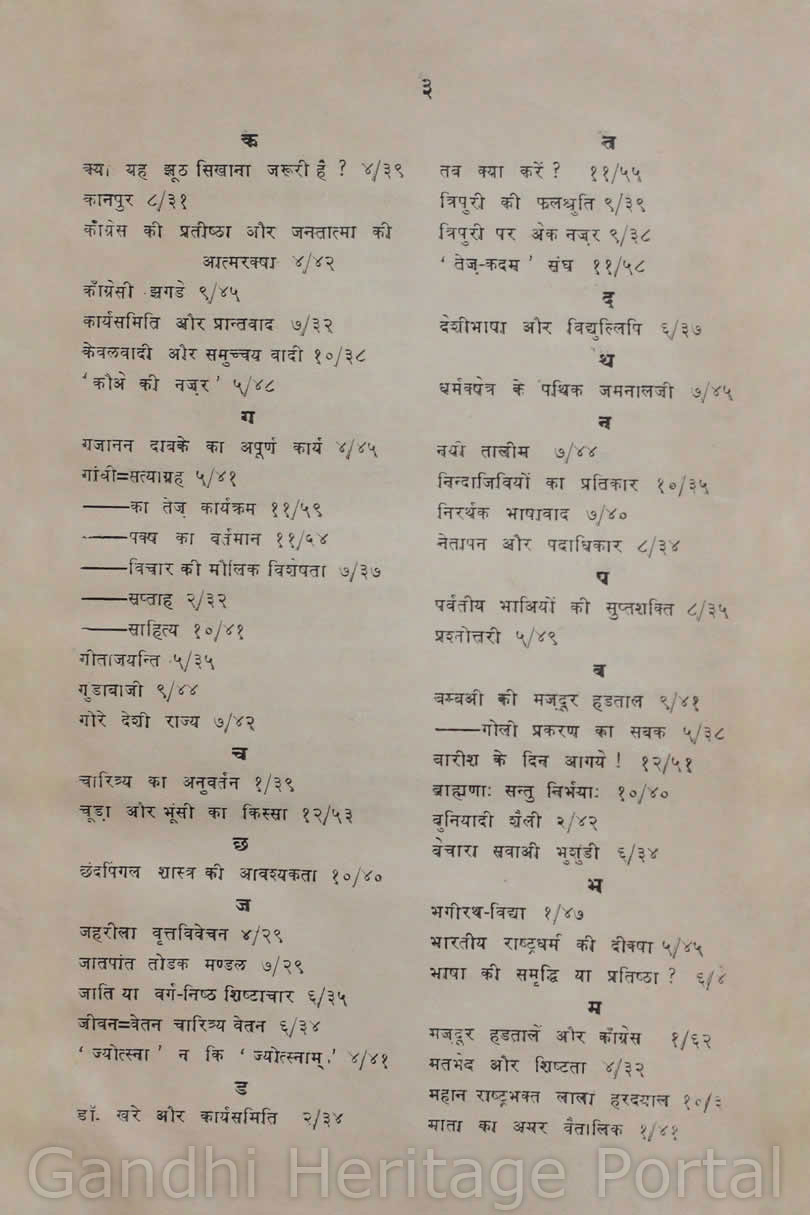 ३
क
क्या यह झूठ सिखाना जरूरी है ? ४/३९
कानपुर ८/३१
काँग्रेस की प्रतीष्ठा और जनतात्मा की
आत्मरक्षा ४/४२
काँग्रेसी झगडे ९/४५
कार्यसमिति और प्रान्तवाद ७/३२
केवलवादी और समुच्चय वादी १०/३८
‘कौअे की नज़र’ ५/४८
ग
गजानन दाबके का अपूर्ण कार्य ४/४५
गांधी=सत्याग्रह ५/४१
——का तेज़ कार्यक्रम ११/५९
——पक्ष का वर्तमान ११/५४
——विचार की मौलिक विशेषता ७/३७
——सप्ताह २/३२
——साहित्य १०/४१
गीताजयन्ति ५/३५
गुडाबाजी ९/४४
गोरे देशी राज्य ७/४२
च
चारित्र्य का अनुवर्तन १/३९
चूड़ा और भूंसी का किस्सा १२/५३
छ
छंदपिंगल शास्त्र की आवश्यकता १०/४०
ज
जहरीला वृत्तविवेचन ४/२९
जातपांत तोडक मण्डल ७/२९
जाति या वर्ग-निष्ठ शिष्टाचार ६/३५
जीवन=वेतन चारित्र्य वेतन ६/३४
‘ज्योत्स्ना’ न कि ‘ज्योत्स्नाम्’ ४/४१
ड
डॉ. खरे और कार्यसमिति २/३४
त
तब क्या करें ? ११/५५
त्रिपुरी की फलश्रुति ९/३९
त्रिपुरी पर अेक नज़र ९/३८
‘तेज़-कदम’ संघ ११/५८
द
देशीभाषा और विद्युल्लिपि ६/३७
ध
धर्मक्षेत्र के पथिक जमनालजी ७/४५
न
नयी तालीम ७/४४
निन्दाजिवियों का प्रतिकार १०/३५
निरर्थक भाषावाद ७/४०
नेतापन और पदाधिकार ८/३४
प
पर्वतीय भाअियों की सुप्तशक्ति ८/३५
प्रश्नोत्तरी ५/४९
ब
बम्बअी की मज़्दूर हडताल ९/४१
——गोली प्रकरण का सबक ५/३८
बारीश के दिन आगये ! १२/५१
ब्राह्मणाः सन्तु निर्भयाः १०/४०
बुनियादी शैली २/४२
बेचारा सवाअी भुशुंडी ६/३४
भ
भगीरथ-विद्या १/४७
भारतीय राष्ट्रधर्म की दीक्षा ५/४५
भाषा की समृद्धि या प्रतिष्ठा ? ६/४
म
मज़्दूर हडतालें और काँग्रेस १/६२
मतभेद और शिष्टता ४/३२
महान राष्ट्रभक्त लाला हरदयाल १०/३
माता का अमर वैतालिक १/४१
Gandhi Heritage Portal